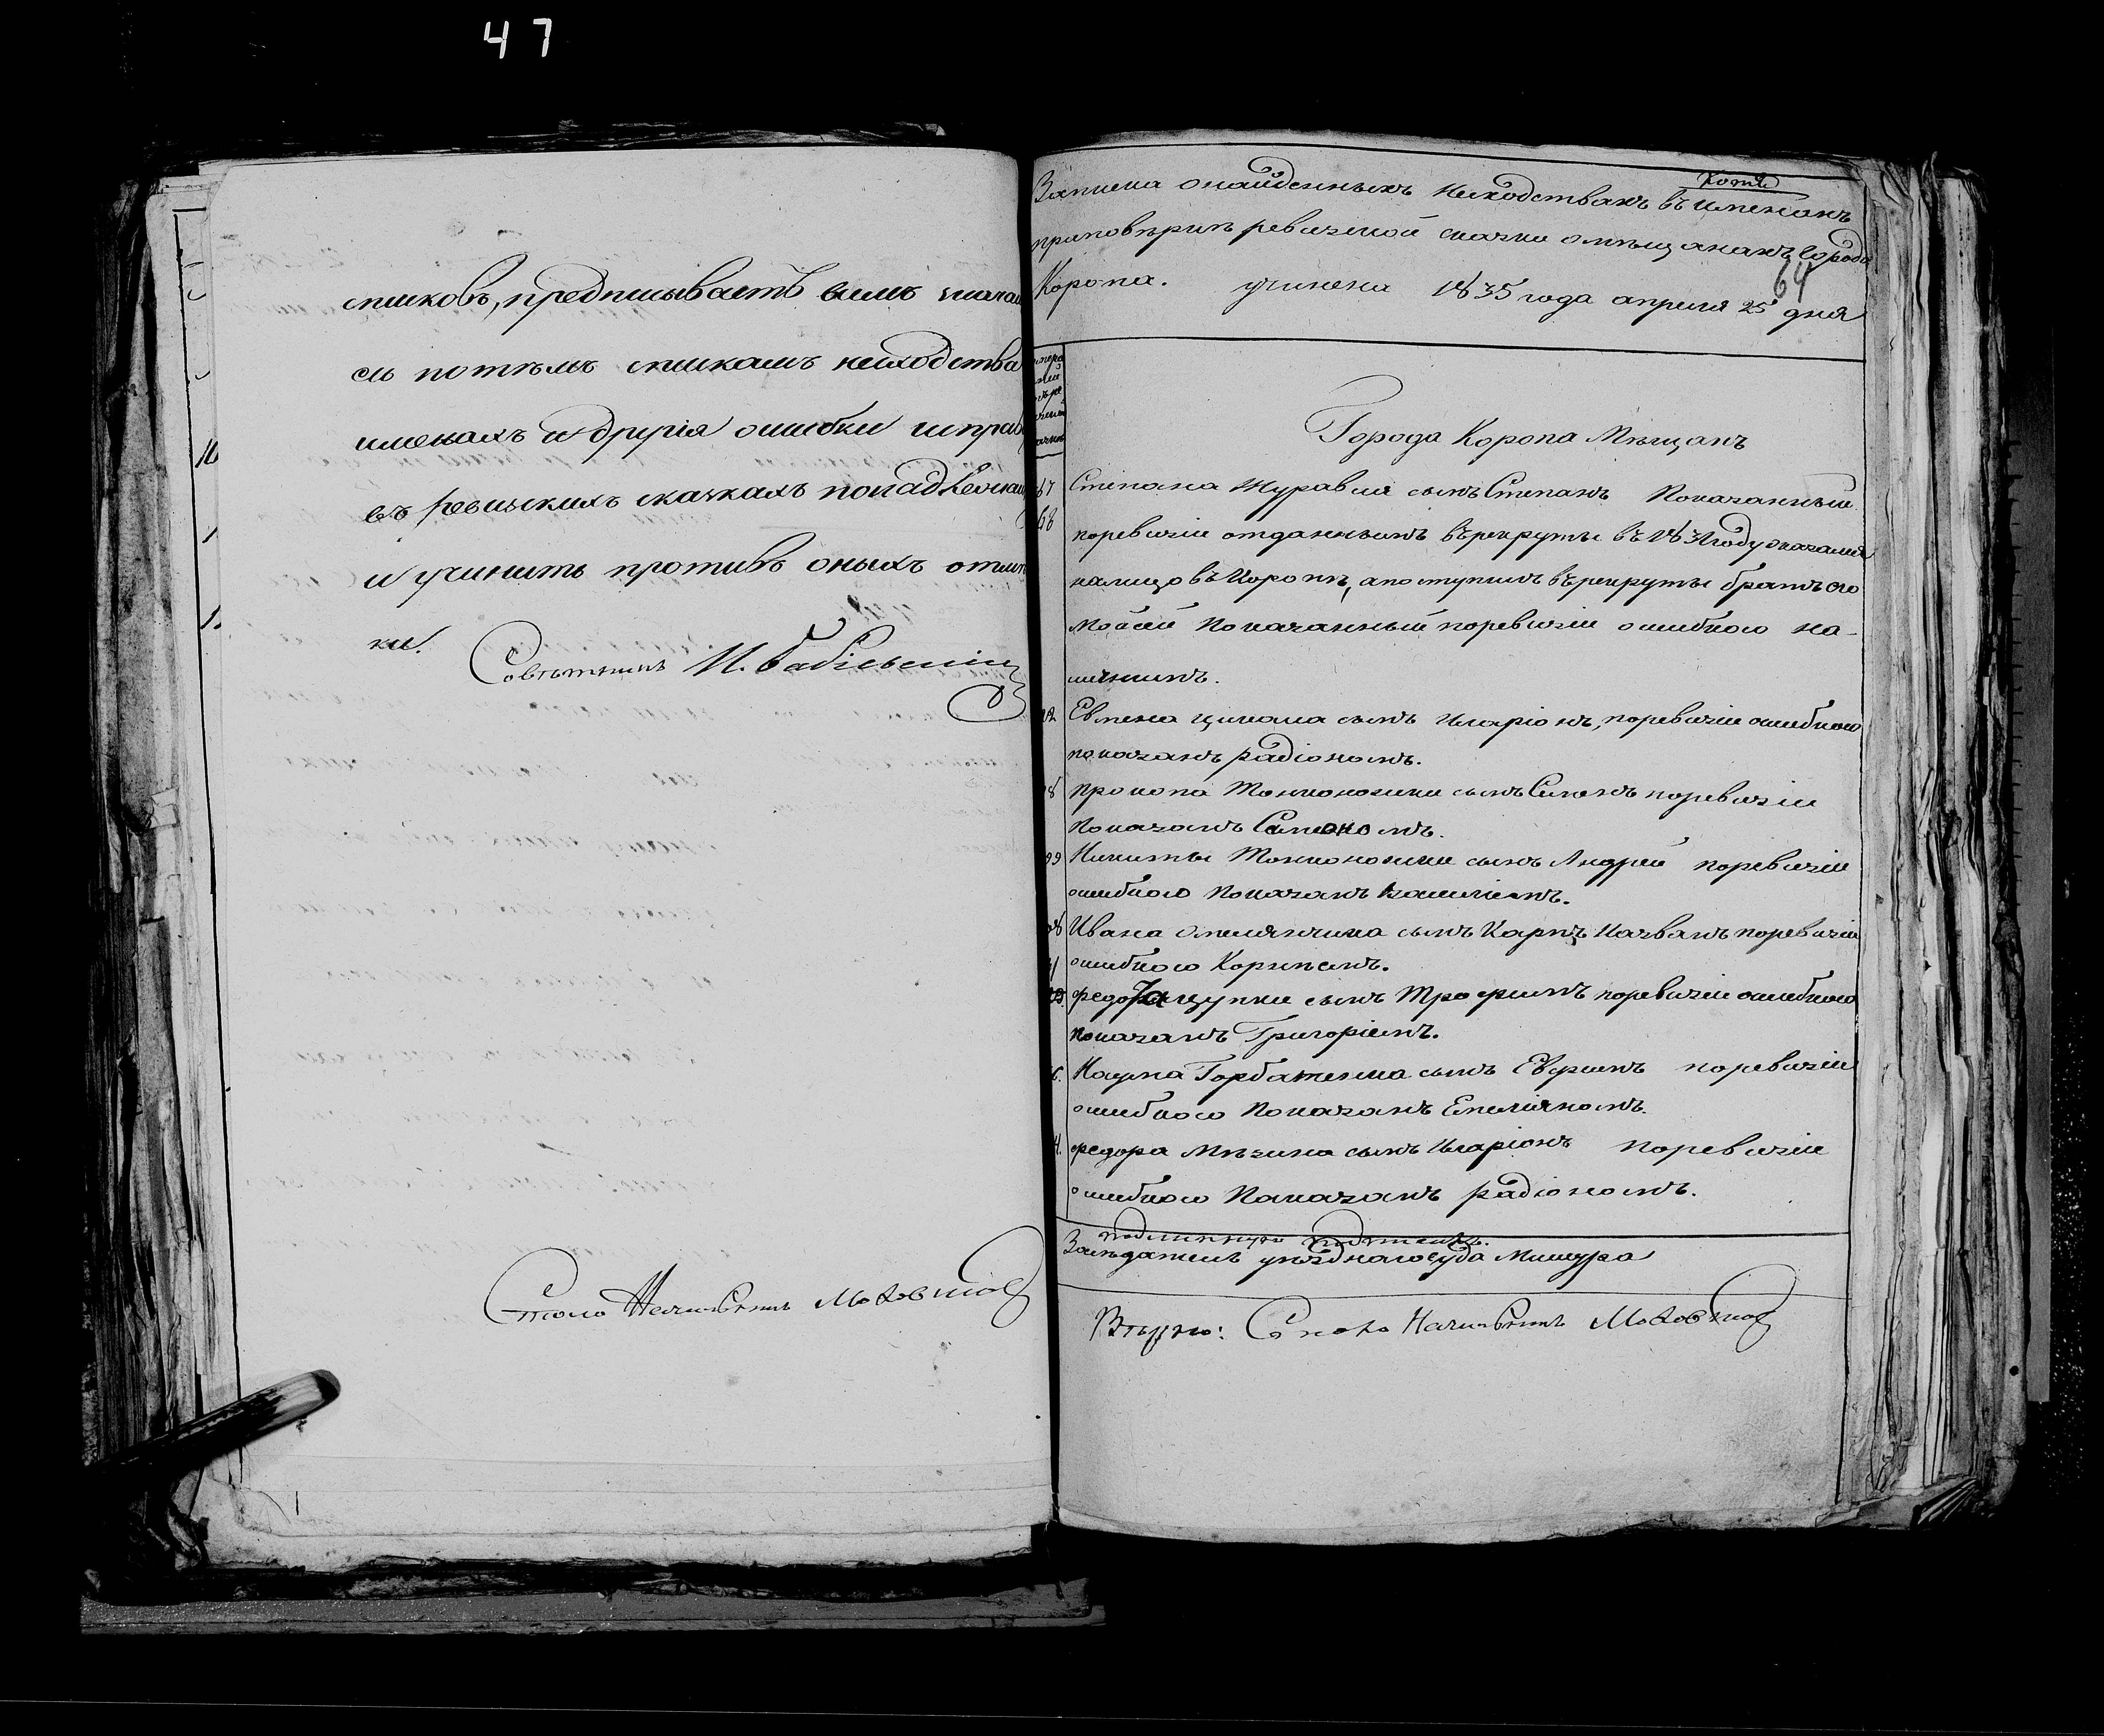 47
списковъ, предписываетъ вамъ значащі
ся потѣмъ спискамъ несходства
именахъ и другія ошибки исправ
въ ревизскихъ сказкахъ
и учинить противъ оныхъ отмѣт
ки.
Совѣтникъ И.
Столо Начальникъ
Копія
Записка онайденныхъ несходствахъ въ именахъ
приповѣркѣ ревизской сказки омѣщанахъ города
Коропа. учинена 1835 года апреля 25 дня
64
Города Коропа Мѣщанъ
67 Степана Журавля сынъ Степанъ Показанный
68 поревизіи отданнымъ врекруты въ 1831 году оказался
налицо въ Коропѣ, апоступилъ врекруты братъ его
Мойсей Показанный поревизіи ошибкою на-
личнымъ.
Евмена Цимала сынъ Иларіонъ, поревизіи ошибкою
показанъ радіономъ.
Прокопа Тонконожки сынъ Симонъ поревизіи
Показанъ Самсономъ.
99 Никиты Тонконожки сынъ Андрей поревизіи
ошибкою Показанъ Василіемъ.
Ивана Омелянчика сынъ Карпъ Названъ поревизіи
ошибкою Корнѣемъ.
федора цупки сынъ Трофимъ поревизіи ошибкою
показанъ Григоріемъ.
6. Наума Горбатенка сынъ Ефимъ поревизіи
ошибкою Показанъ Емеліяномъ.
4. федора Мѣзина сынъ Иларіонъ Поревизіи
ошибкою Показанъ радіономъ.
подлинную подписалъ.
Засѣдатель уѣзднаго суда Мишура
Вѣрно: Столо Начальникъ